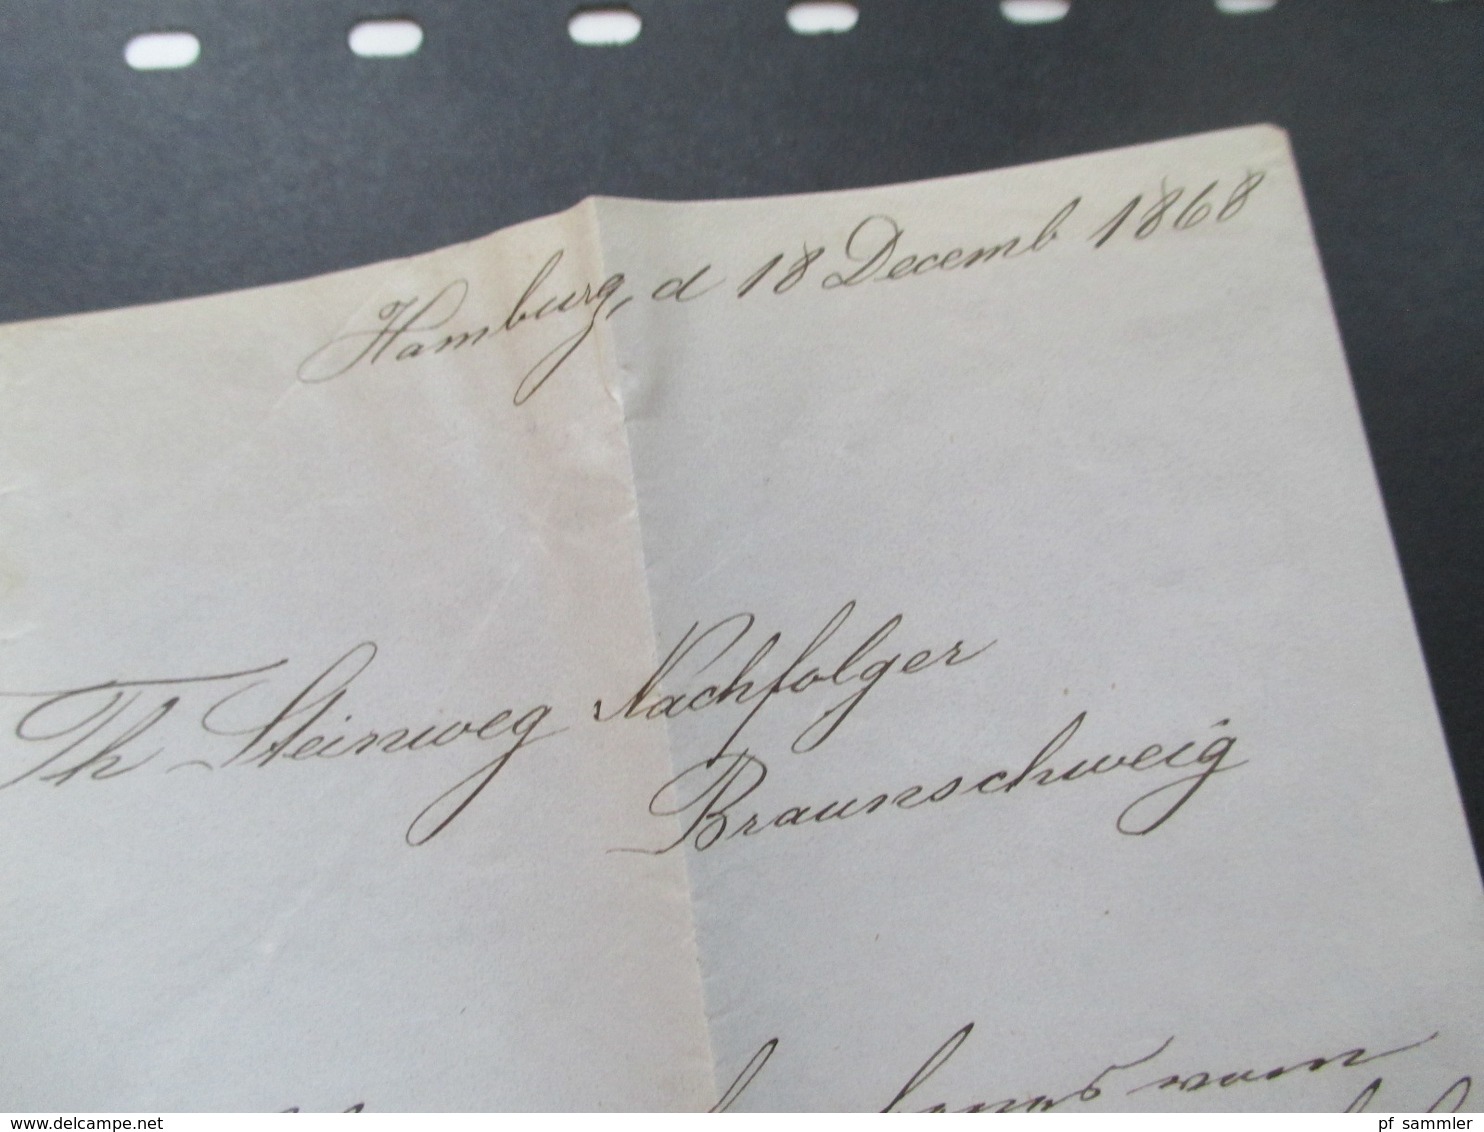 Hamburg, d 18 Decemb 1868
Th Steinweg Nachfolger
Braunschweig
vom
www.delcampe.net
pf_sammler